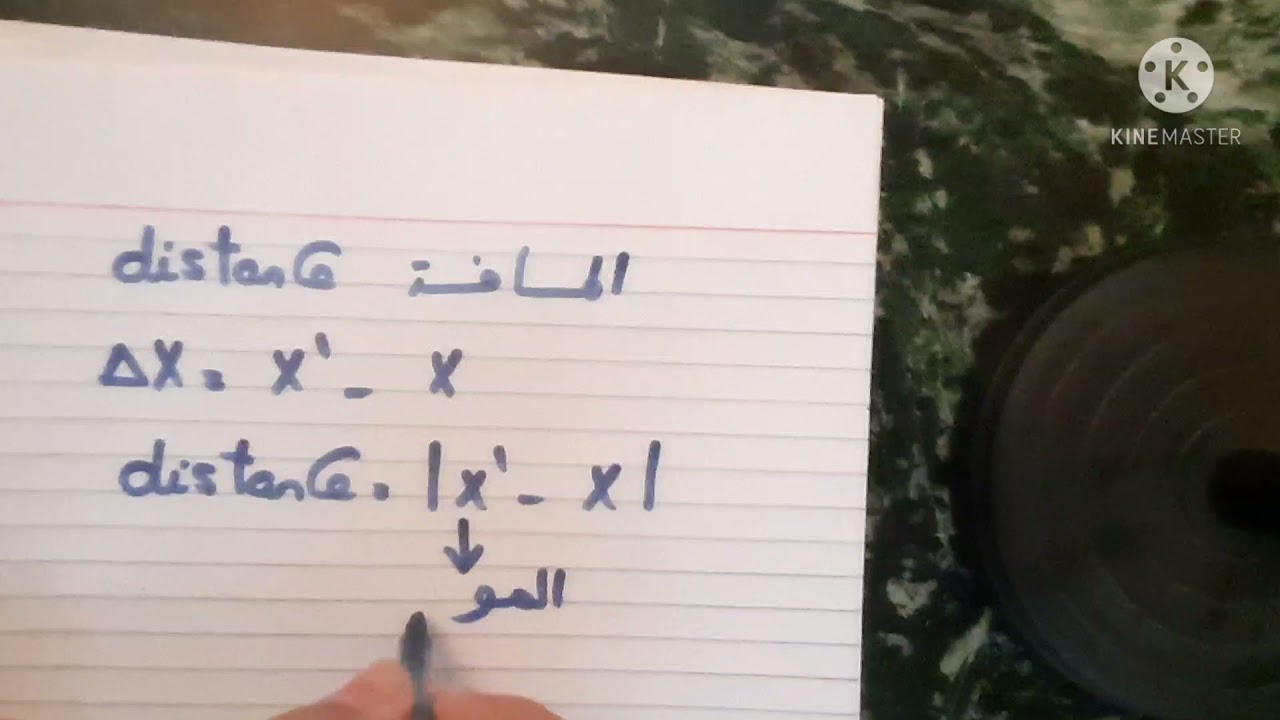 distance المسافة
Δx = x' - x
distance = |x' - x|
↓
المو
K
KINEMASTER